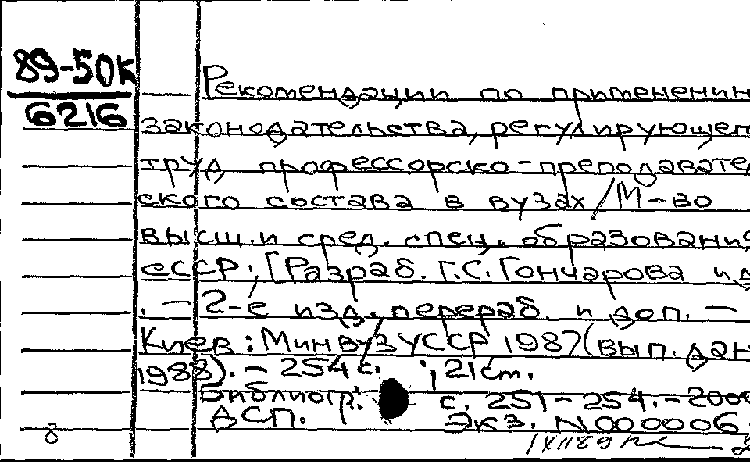 89-50К
6216
Рекомендации по применению
законодательства, регулирующего
труд профессорско-преподавател
ского состава в вузах / М-во
высш. и сред. спец. образования
СССР; [Разраб. Г.С. Гончарова и д
. - 2-е изд., перераб. и доп. -
Киев: Минвуз УССР 1987 (вып. дан
1988). - 254 с. ; 21 см.
Библиогр.: с. 251-254. - 200
ДСП. Экз. N000006